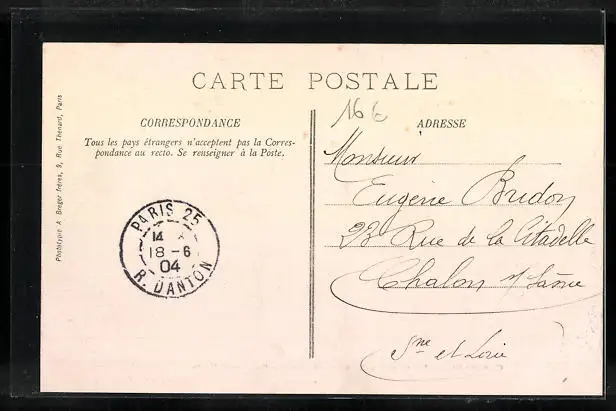 CARTE POSTALE
CORRESPONDANCE
Tous les pays étrangers n'acceptent pas la Corres-
pondance au recto. Se renseigner à la Poste.
Phototypie A. Breger frères, 9, Rue Thénard, Paris
PARIS 25
14
18-6
04
R. DANTON
16
ADRESSE
Monsieur
Eugene Bridoy
23 Rue de la Citadelle
Chalon s/ Saône
Sne et Loire